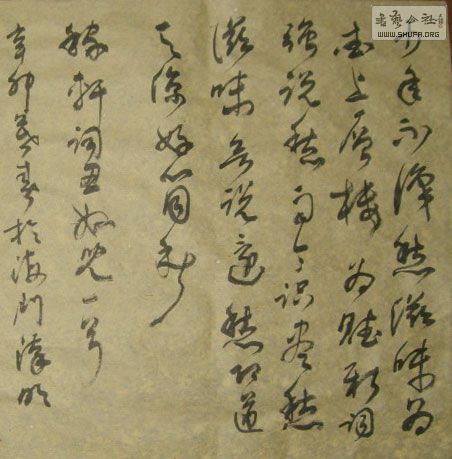 少年不愁滋味
上层楼为赋新词
强说愁而今识尽愁
滋味说还愁却道
天凉好个秋
稼轩词丑奴儿一首
辛卯暮春於海门
书艺公社
WWW.SHUFA.ORG